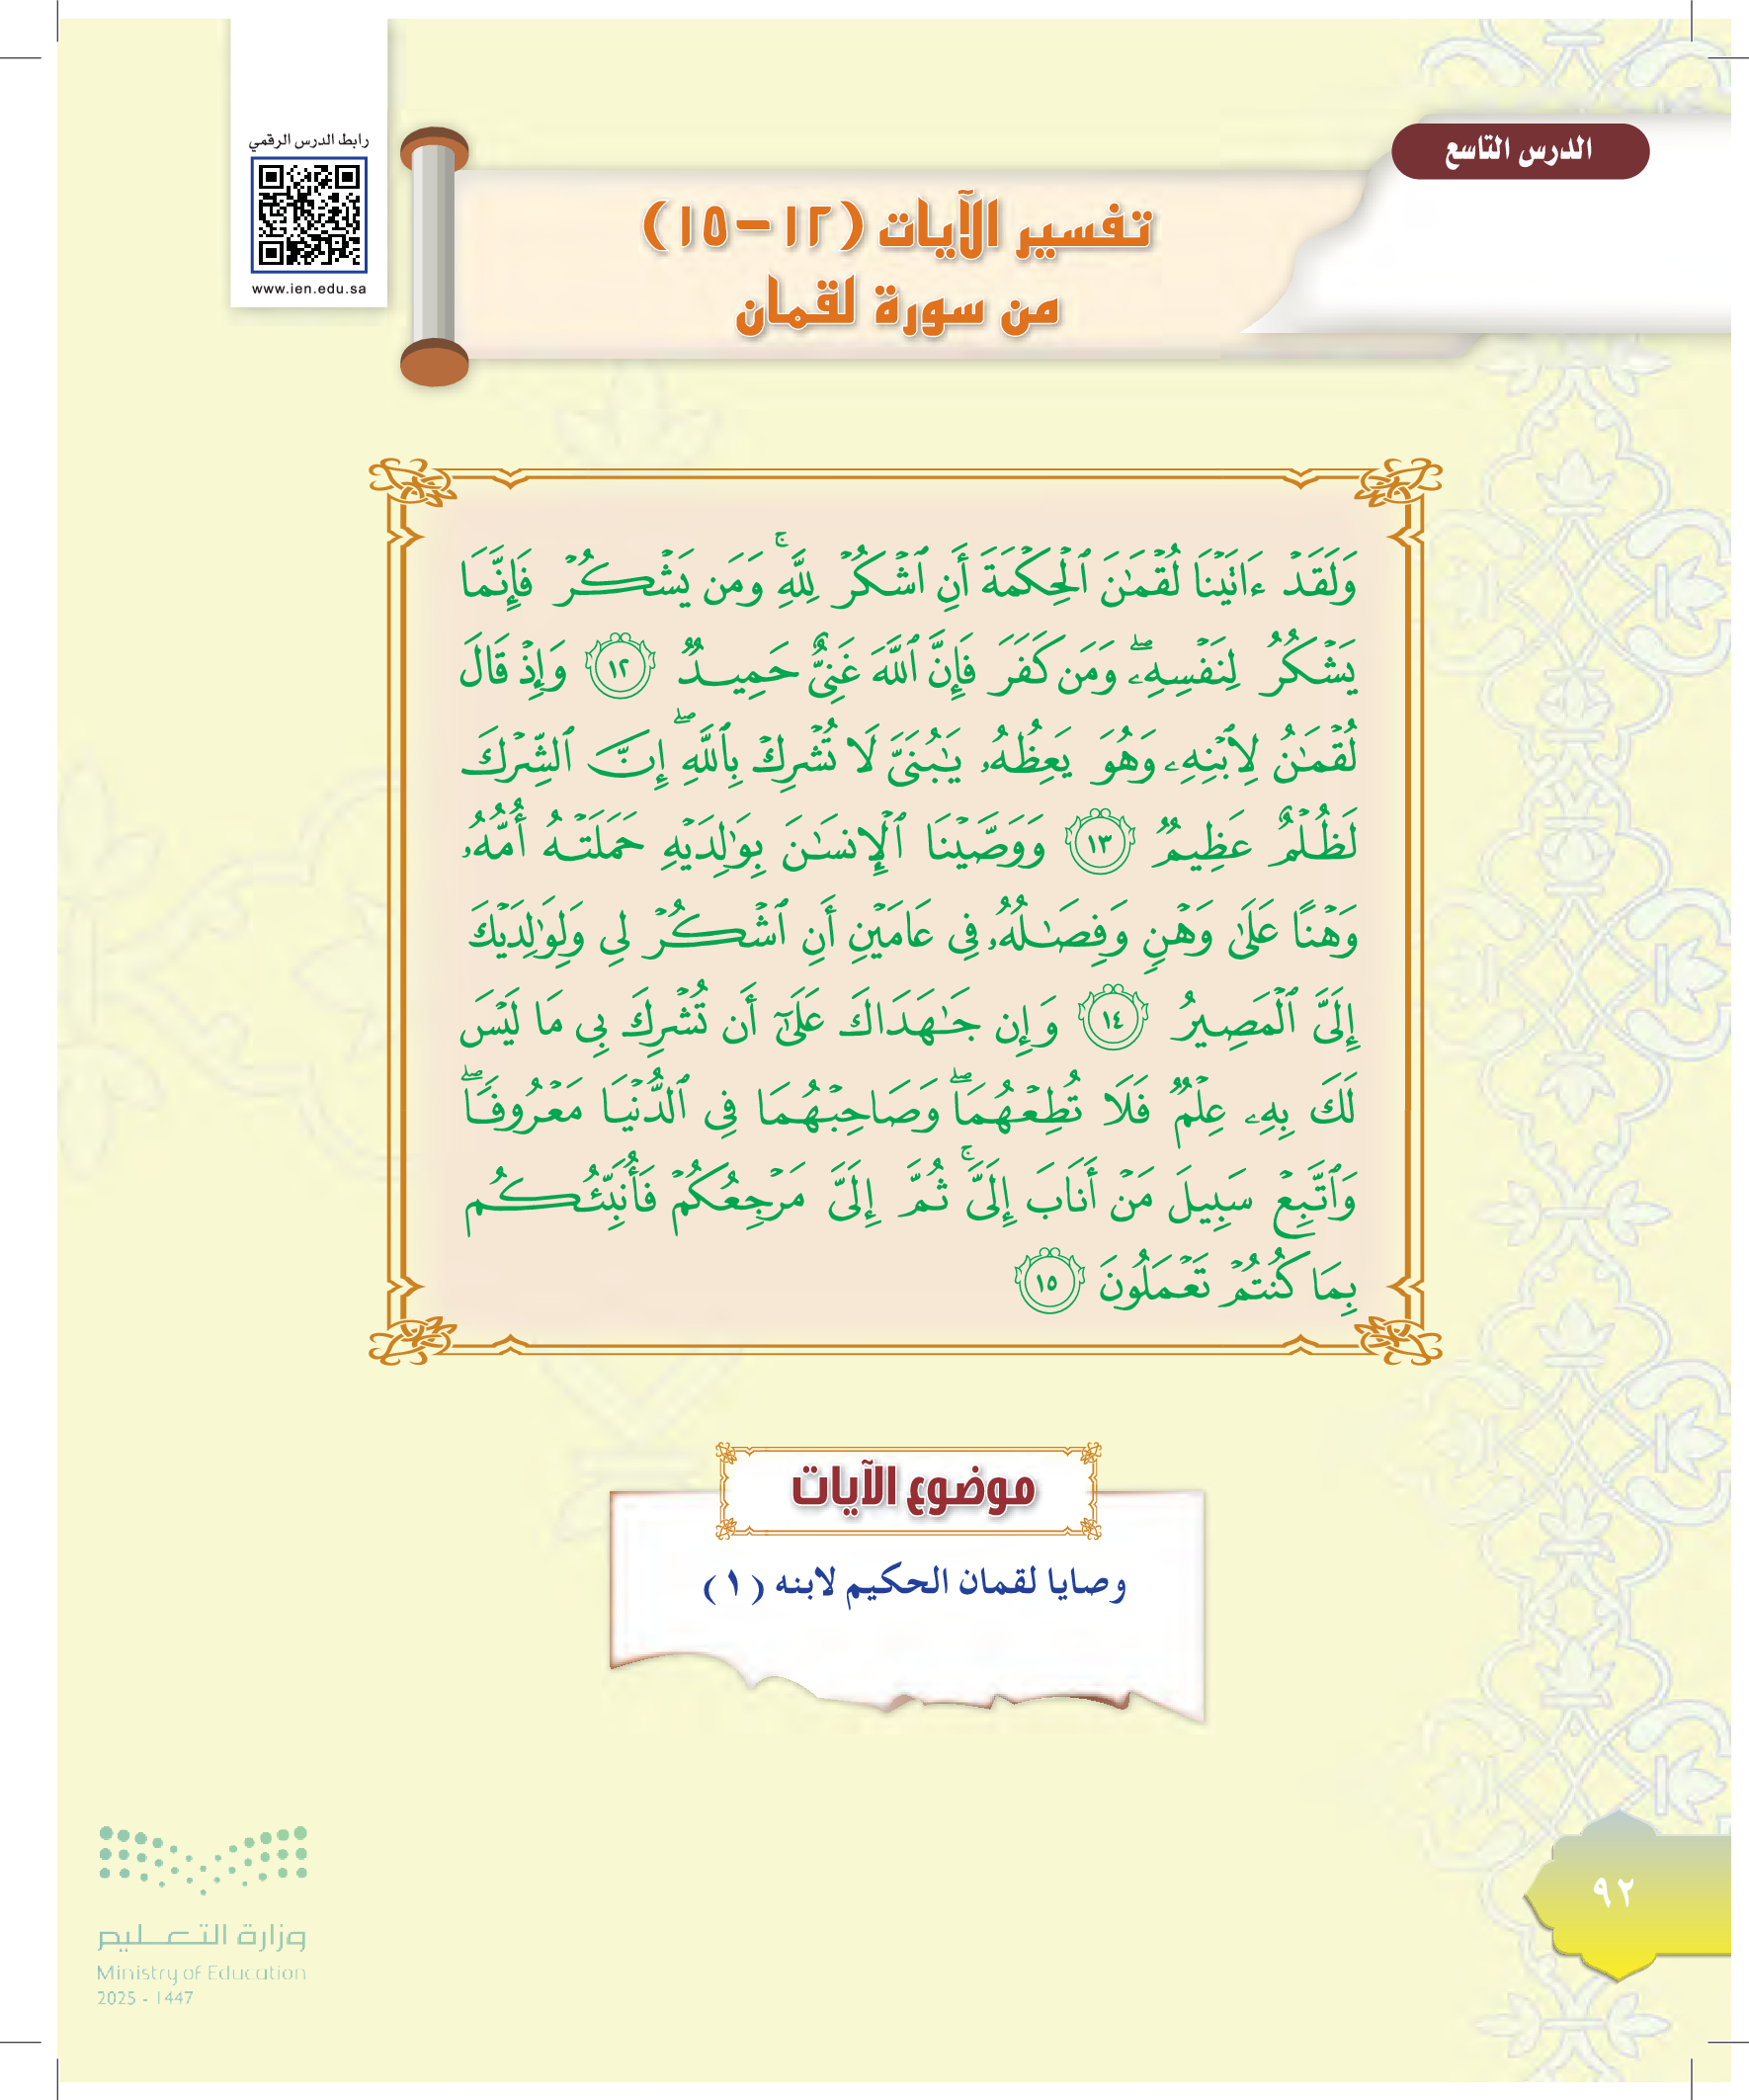 الدرس التاسع
رابط الدرس الرقمي
www.ien.edu.sa
تفسير الآيات (١٢-١٥)
من سورة لقمان
وَلَقَدۡ ءَاتَيۡنَا لُقۡمَٰنَ ٱلۡحِكۡمَةَ أَنِ ٱشۡكُرۡ لِلَّهِۚ وَمَن يَشۡكُرۡ فَإِنَّمَا
يَشۡكُرُ لِنَفۡسِهِۦۖ وَمَن كَفَرَ فَإِنَّ ٱللَّهَ غَنِيٌّ حَمِيدٞ ١٢ وَإِذۡ قَالَ
لُقۡمَٰنُ لِٱبۡنِهِۦ وَهُوَ يَعِظُهُۥ يَٰبُنَيَّ لَا تُشۡرِكۡ بِٱللَّهِۖ إِنَّ ٱلشِّرۡكَ
لَظُلۡمٌ عَظِيمٞ ١٣ وَوَصَّيۡنَا ٱلۡإِنسَٰنَ بِوَٰلِدَيۡهِ حَمَلَتۡهُ أُمُّهُۥ
وَهۡنًا عَلَىٰ وَهۡنٖ وَفِصَٰلُهُۥ فِي عَامَيۡنِ أَنِ ٱشۡكُرۡ لِي وَلِوَٰلِدَيۡكَ
إِلَيَّ ٱلۡمَصِيرُ ١٤ وَإِن جَٰهَدَاكَ عَلَىٰٓ أَن تُشۡرِكَ بِي مَا لَيۡسَ
لَكَ بِهِۦ عِلۡمٞ فَلَا تُطِعۡهُمَاۖ وَصَاحِبۡهُمَا فِي ٱلدُّنۡيَا مَعۡرُوفٗاۖ
وَٱتَّبِعۡ سَبِيلَ مَنۡ أَنَابَ إِلَيَّۚ ثُمَّ إِلَيَّ مَرۡجِعُكُمۡ فَأُنَبِّئُكُم
بِمَا كُنتُمۡ تَعۡمَلُونَ ١٥
موضوع الآيات
وصايا لقمان الحكيم لابنه (١)
٩٢
وزارة التعليم
Ministry of Education
2025 - 1447